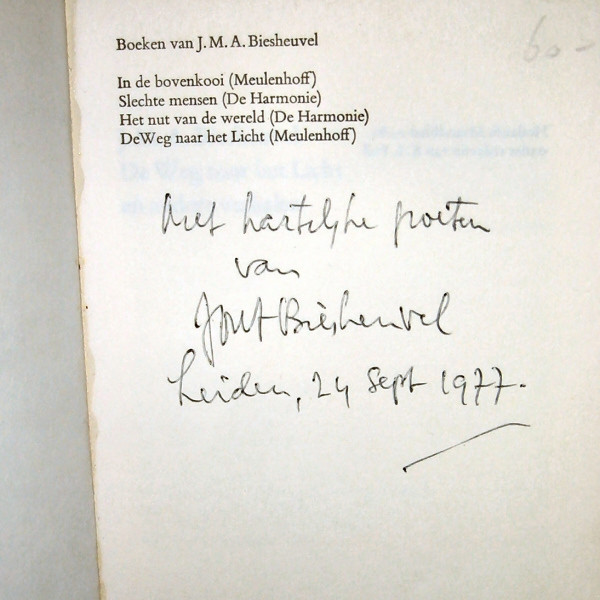 60-
Boeken van J. M. A. Biesheuvel
In de bovenkooi (Meulenhoff)
Slechte mensen (De Harmonie)
Het nut van de wereld (De Harmonie)
DeWeg naar het Licht (Meulenhoff)
Met hartelijke groeten
van
Biesheuvel
Leiden, 24 Sept 1977.